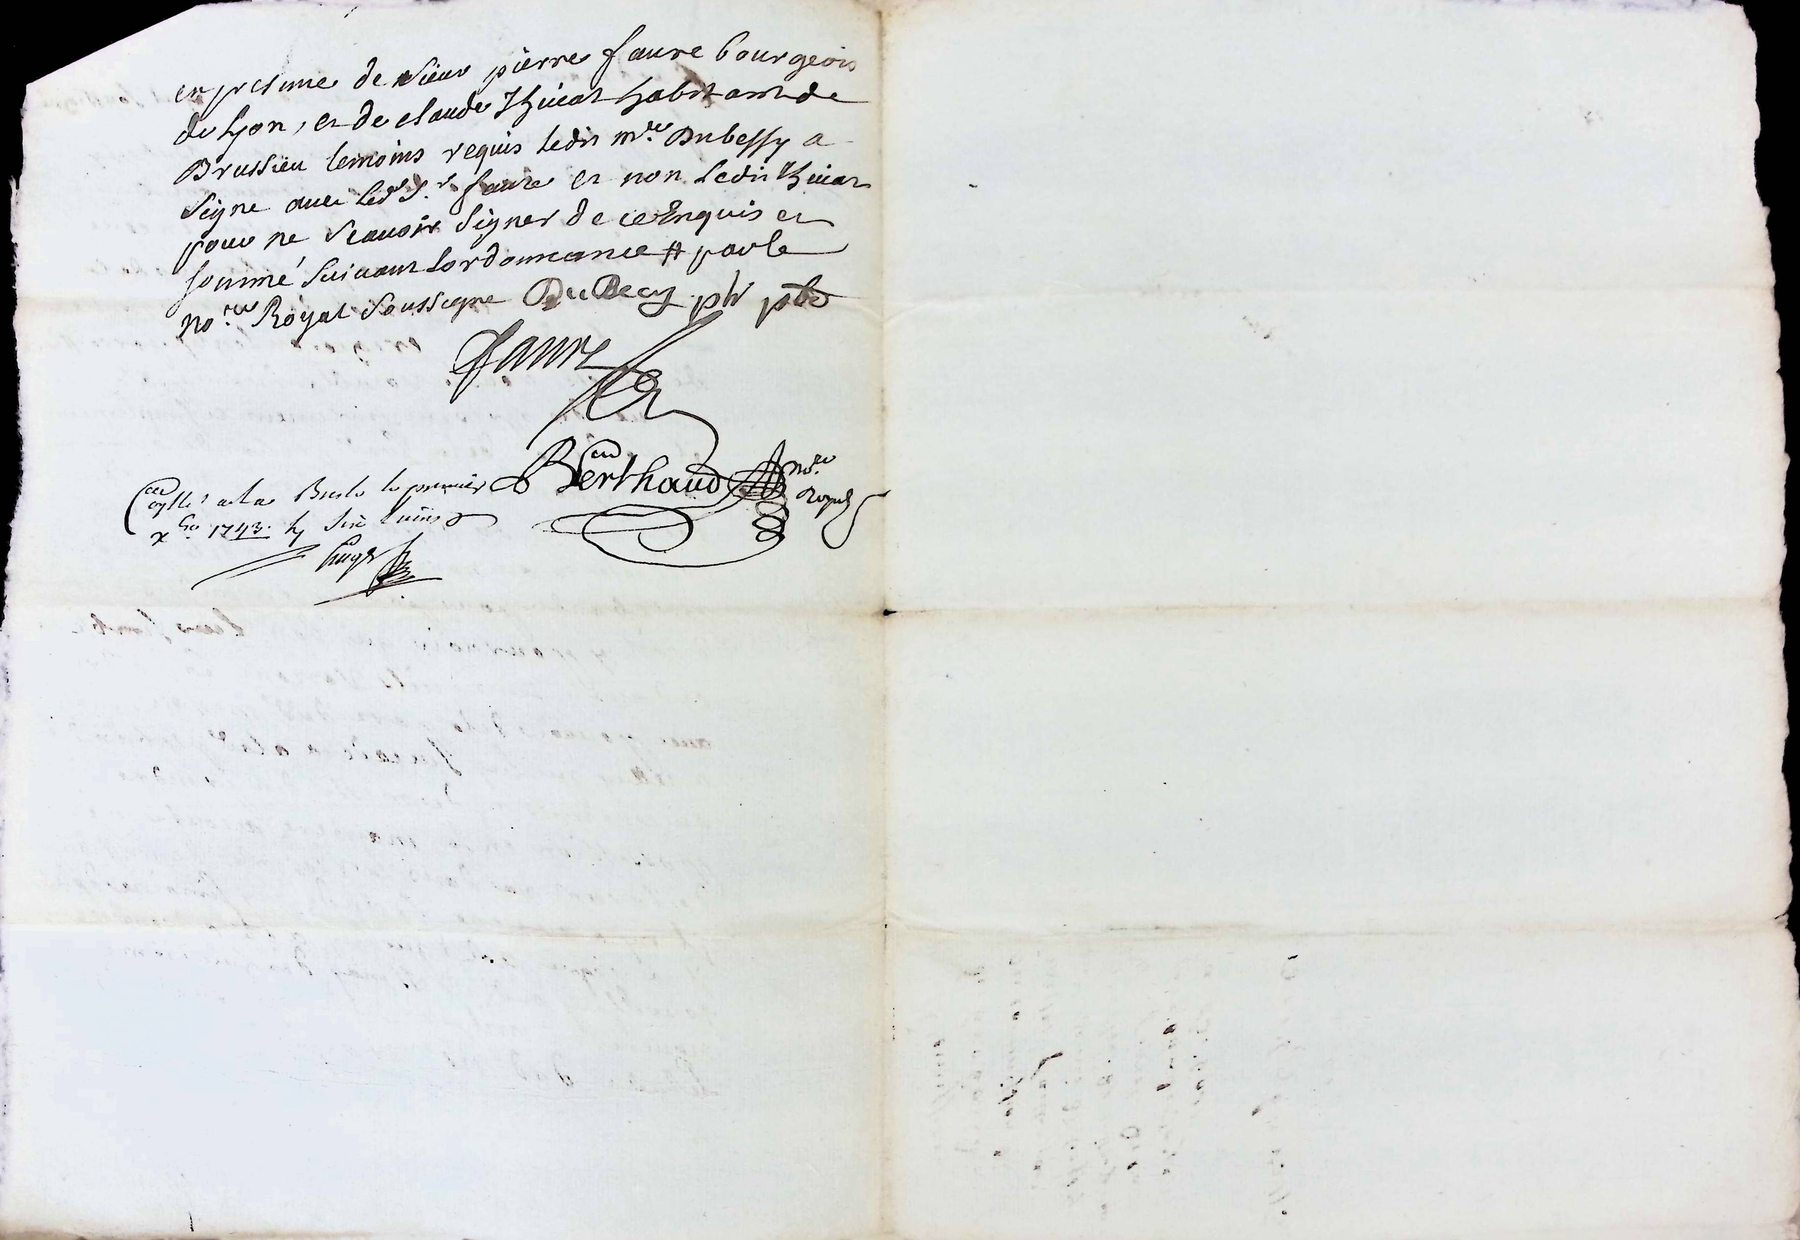 en presence de Sieur pierre faure bourgeois
de Lyon, et de claude Thivat habitant de
Brussieu temoins requis ledit mre. Dubessy a
signe avec led. Sr. faure et non ledit Thivat
pour ne scavoir signer de ce Enquis et
sommé suivant Lordonnance # par le
no.re Royal soussigne DuBecy ptr
faure
Berthaud no.re
Royal
a la Bresle le premier
1743.